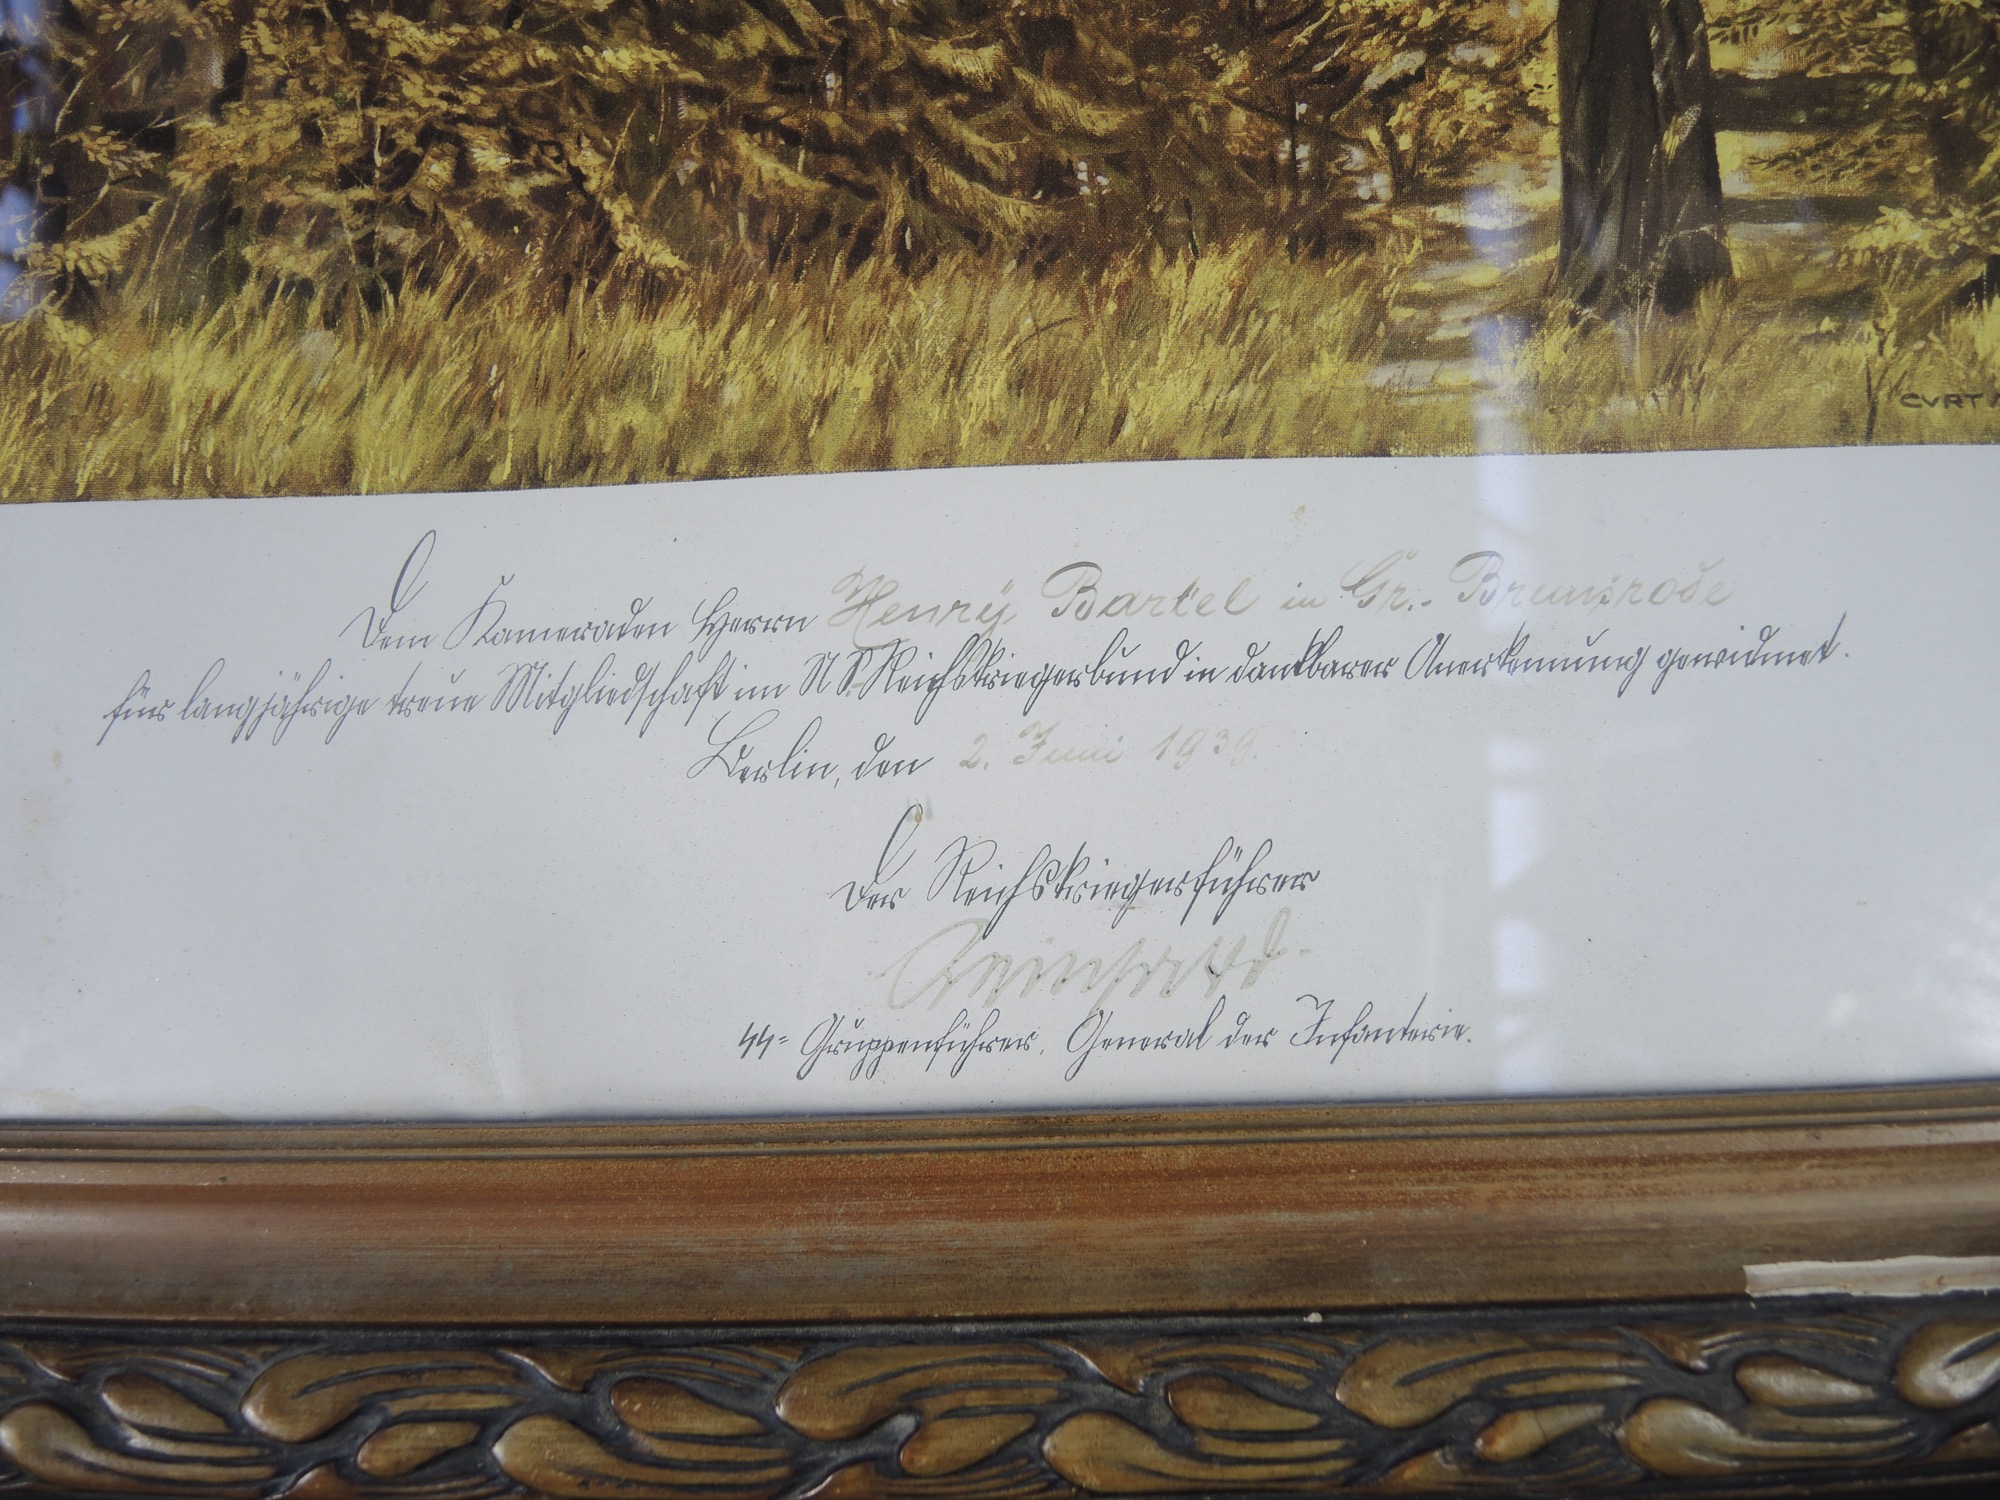 CVRT
Dem Kameraden Herrn Henry Bartel in Gr.- Brunsrode
für langjährige treue Mitgliedschaft im N S. Reichskriegerbund in dankbarer Anerkennung gewidmet.
Berlin, den 2. Juni 1939.
Der Reichskriegerführer
Reinhard
SS= Gruppenführer, General der Infanterie.